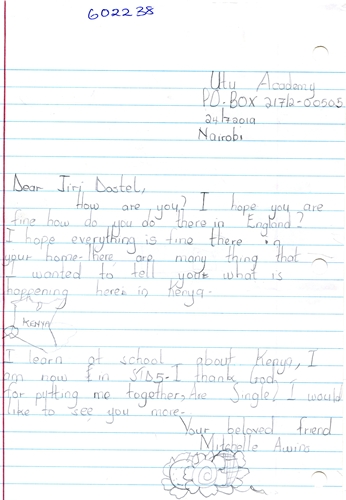 602238
Utu Academy
P.O. BOX 21712-00505
24/7/2019
Nairobi
Dear Jiri Dostel,
How are you? I hope you are
fine how do you do there in England?
I hope everything is fine there in
your home. There are many thing that
I wanted to tell you what is
happening here in Kenya.
KENYA
I learn at school about Kenya, I
am now in STD5. I thank God
for putting me together, Are Single! I would
like to see you more.
Your beloved friend
Mitchelle